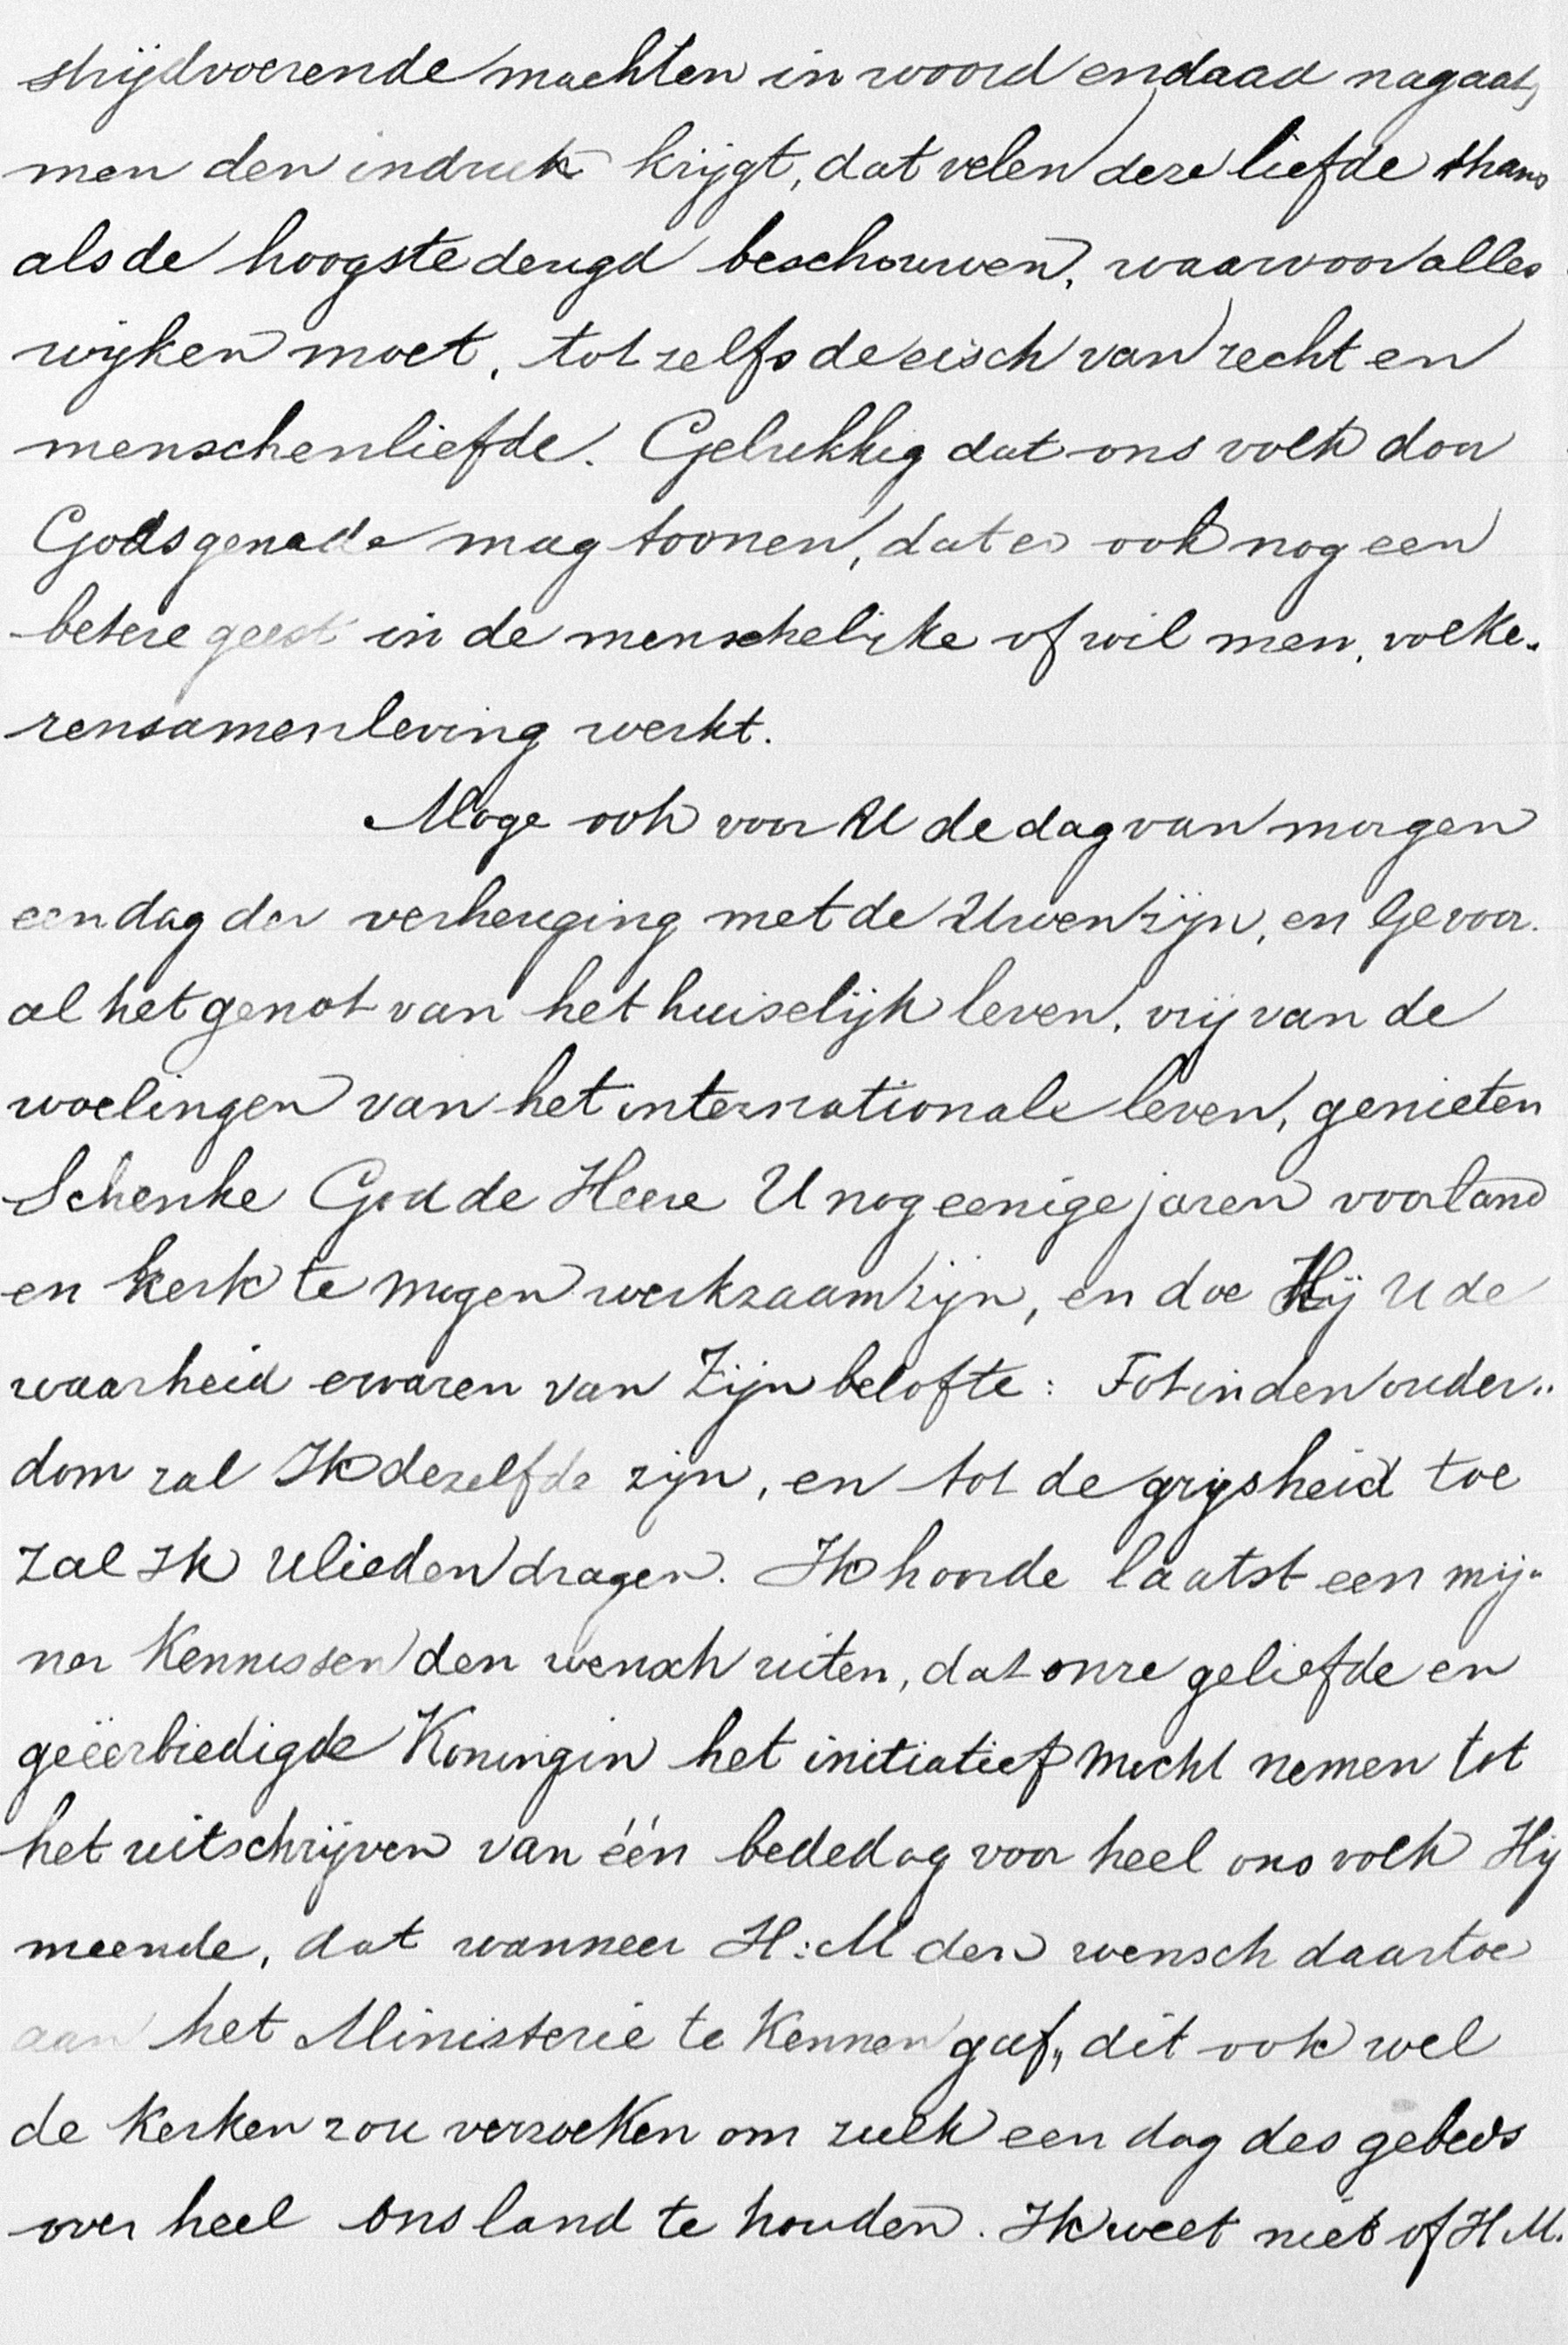 strijdvoerende machten in woord en daad nagaat,
men den indruk krijgt, dat velen deze liefde thans
als de hoogste deugd beschouwen, waarvoor alles
wijken moet, tot zelfs de eisch van recht en
menschenliefde. Gelukkig dat ons volk door
Gods genade mag toonen, dat er ook nog een
betere geest in de menschelijke of wil men, volke-
rensamenleving werkt.
Moge ook voor U de dag van morgen
een dag der verheuging met de Uwen zijn, en Ge voor-
al het genot van het huiselijk leven, vrij van de
woelingen van het internationale leven, genieten
Schenke God de Heere U nog eenige jaren voor land
en kerk te mogen werkzaam zijn, en doe Hij U de
waarheid ervaren van Zijn belofte: Tot in den ouder-
dom zal Ik dezelfde zijn, en tot de grijsheid toe
zal Ik ulieden dragen. Ik hoorde laatst een mij-
ner kennissen den wensch uiten, dat onze geliefde en
geëerbiedigde Koningin het initiatief mocht nemen tot
het uitschrijven van één bededag voor heel ons volk Hij
meende, dat wanneer H:M den wensch daartoe
aan het Ministerie te kennen gaf, dit ook wel
de kerken zou verzoeken om zulk een dag des gebeds
over heel ons land te houden. Ik weet niet of H M.